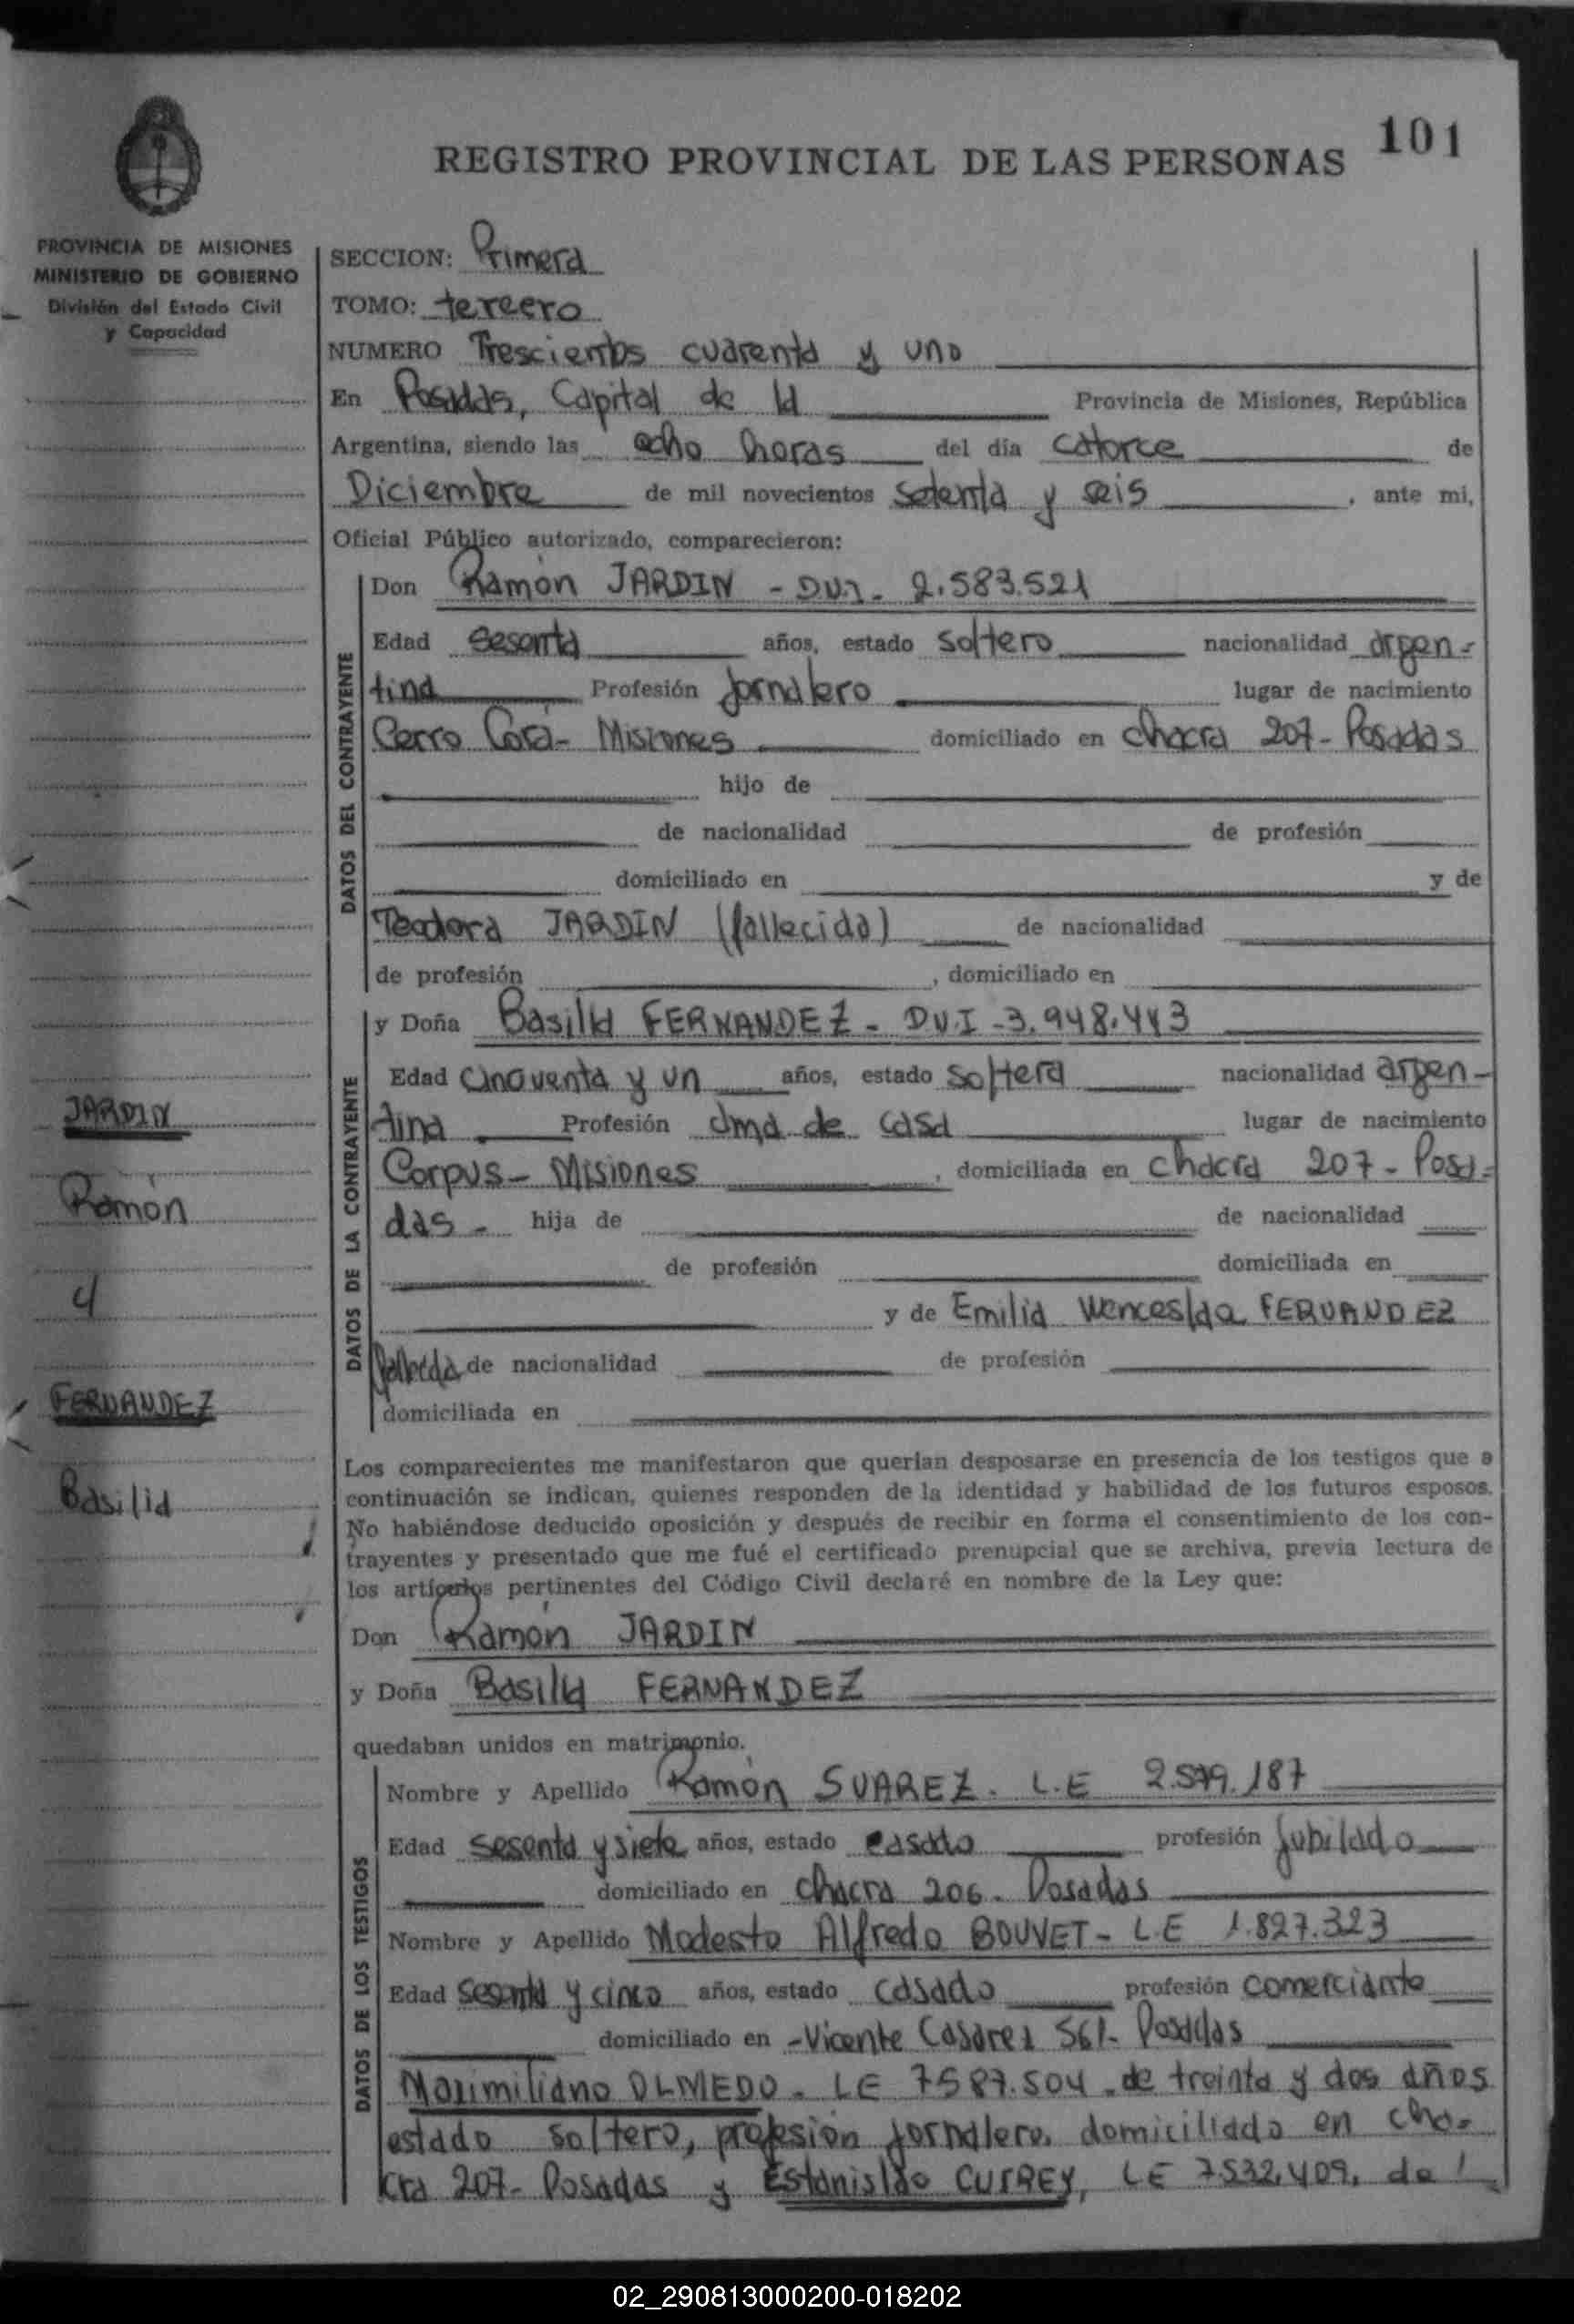 101
REGISTRO PROVINCIAL DE LAS PERSONAS
PROVINCIA DE MISIONES
MINISTERIO DE GOBIERNO
División del Estado Civil
y Capacidad
SECCION: Primera
TOMO: tercero
NUMERO Trescientos cuarenta y uno
En Posadas, Capital de la Provincia de Misiones, República
Argentina, siendo las ocho horas del día catorce de
Diciembre de mil novecientos setenta y seis, ante mi,
Oficial Público autorizado, comparecieron:
DATOS DEL CONTRAYENTE
Don Ramón JARDIN - DU.I. 2.583.521
Edad sesenta años, estado soltero nacionalidad argen-
tina Profesión jornalero lugar de nacimiento
Cerro Corá - Misiones domiciliado en chacra 207 - Posadas
hijo de
de nacionalidad de profesión
domiciliado en y de
Teodora JARDIN (fallecida) de nacionalidad
de profesión , domiciliado en
DATOS DE LA CONTRAYENTE
y Doña Basilia FERNANDEZ - DU.I - 3.948.443
Edad cincuenta y un años, estado soltera nacionalidad argen-
tina Profesión ama de casa lugar de nacimiento
Corpus - Misiones , domiciliada en chacra 207 - Posa-
das - hija de de nacionalidad
de profesión domiciliada en
y de Emilia Wenceslaa FERNANDEZ
fallecida de nacionalidad de profesión
domiciliada en
JARDIN
Ramón
y
FERNANDEZ
Basilia
Los comparecientes me manifestaron que querían desposarse en presencia de los testigos que a
continuación se indican, quienes responden de la identidad y habilidad de los futuros esposos.
No habiéndose deducido oposición y después de recibir en forma el consentimiento de los con-
trayentes y presentado que me fué el certificado prenupcial que se archiva, previa lectura de
los artículos pertinentes del Código Civil declaré en nombre de la Ley que:
Don Ramón JARDIN
y Doña Basilia FERNANDEZ
quedaban unidos en matrimonio.
DATOS DE LOS TESTIGOS
Nombre y Apellido Ramón SUAREZ. L.E 2.579.187
Edad sesenta y siete años, estado casado profesión jubilado
domiciliado en chacra 206. Posadas
Nombre y Apellido Modesto Alfredo BOUVET - L.E 1.827.323
Edad sesenta y cinco años, estado casado profesión comerciante
domiciliado en - Vicente Casares 561- Posadas
Maximiliano OLMEDO. LE 7587.504. de treinta y dos años
estado soltero, profesión jornalero, domiciliado en cha-
cra 207- Posadas y Estanislao CUTREY, LE 7.532.409, de
02_290813000200-018202